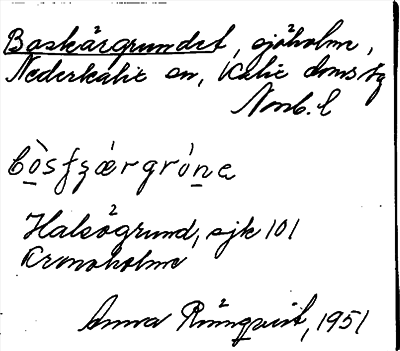 Baskärgrundet, sjöholme,
Nederkalix sn, Kalix doms fg
Norrb. l
Halsögrund, sjk 101
Kronoholme
Anna Rönnqvist, 1951